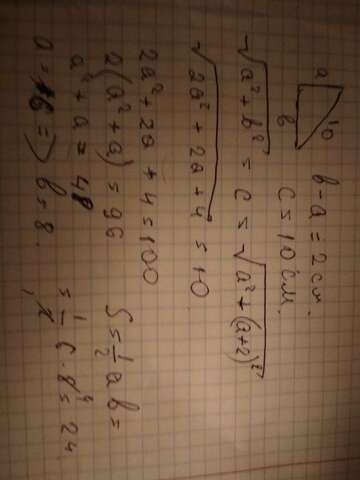 a
10
b
b-a=2см.
c=10см.
√a²+b² = c = √a²+(a+2)²
√2a²+2a+4 = 10
2a²+2a+4=100
2(a²+a)=96
a²+a=48
a=6 => b=8.
S=1/2ab=
=1/2 6·8=24.